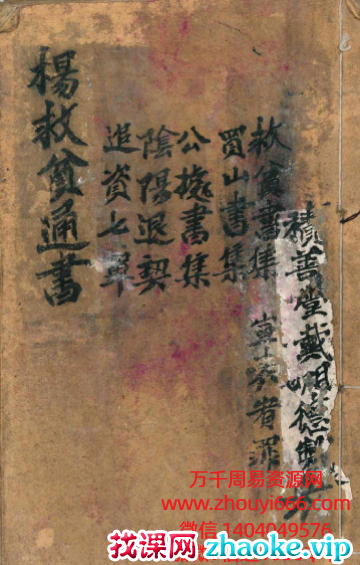 積善堂戴明德
救貧書集
者
買山書集
公書集
陰陽退契
資七單
楊救貧通書
万千周易资源网
www.zhouyi666.com
微信 1404049576
找课网 zhaoke.vip